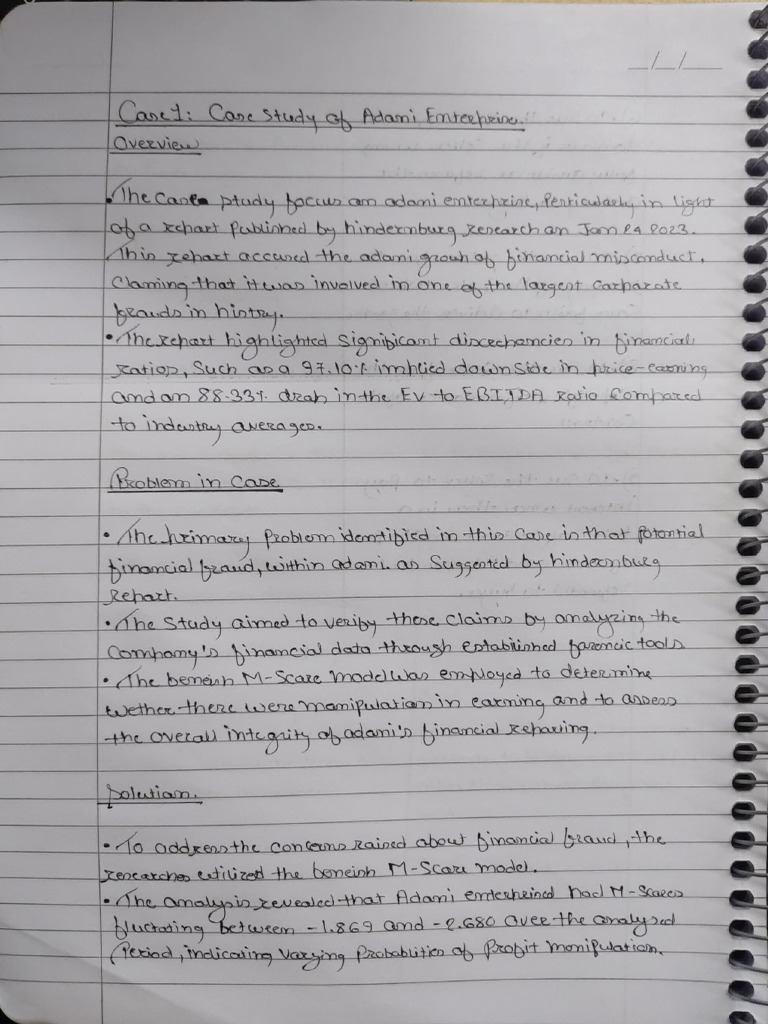 __/__/____
Case1: Case Study of Adami Enterprise.
Overview
• The Case study foccus on adami enterprise, Perticularly in light
of a report Published by hindernburg research on Jan 24 2023.
This report accused the adami group of financial misconduct.
Claming that it was involved in one of the largest Carparate
frauds in histry.
• The report highlighted significant discrepancies in financial
ratios, Such as a 97.10% implied downside in price-earning
and an 88.33% drop in the EV to EBITDA ratio Compared
to industry averages.
Problem in Case
• The primary Problem identified in this Case is that Potential
financial fraud, within adami. as Suggested by hindernburg
Report.
• The Study aimed to verify these Claims by analyzing the
Company's financial data through established forencic tools
• The beneish M-Score Model was employed to determine
wether there were manipulation in earning and to assess
the overall integrity of adami's financial reporing.
Solution.
• To address the concerns raised about financial fraud, the
researches utilized the beneish M-Score model.
• The analysis revealed that Adami enterprised had M-Scores
fluctating between -1.869 and -2.680 over the analyzed
Period, indicaring varying Probablities of Profit manipulation.